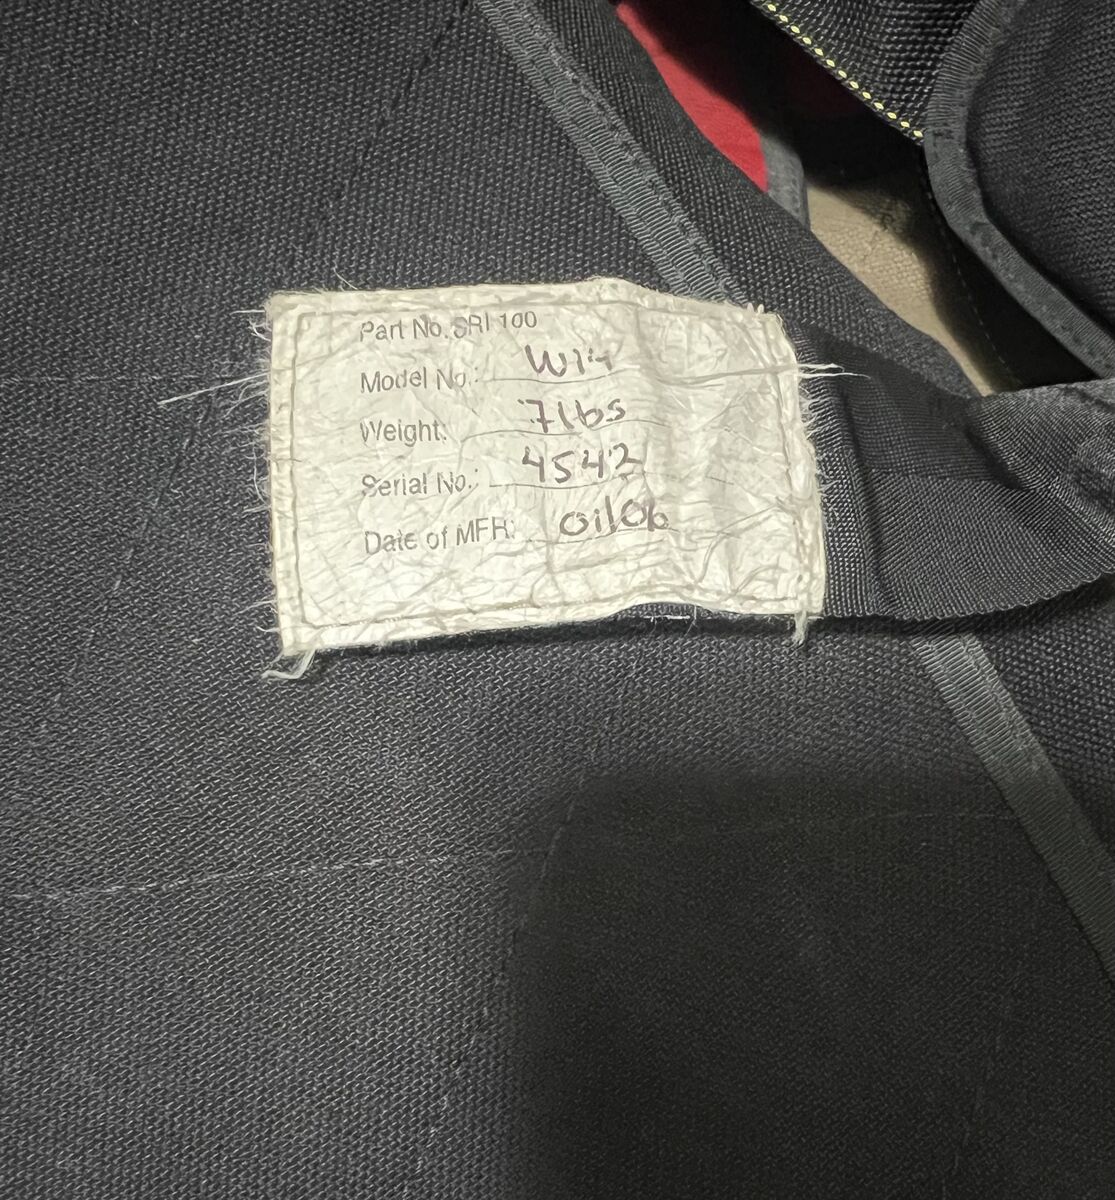 Part No. SRI 100
Model No.:
Weight: 7lbs
Serial No.: 4542
Date of MFR: 01/06